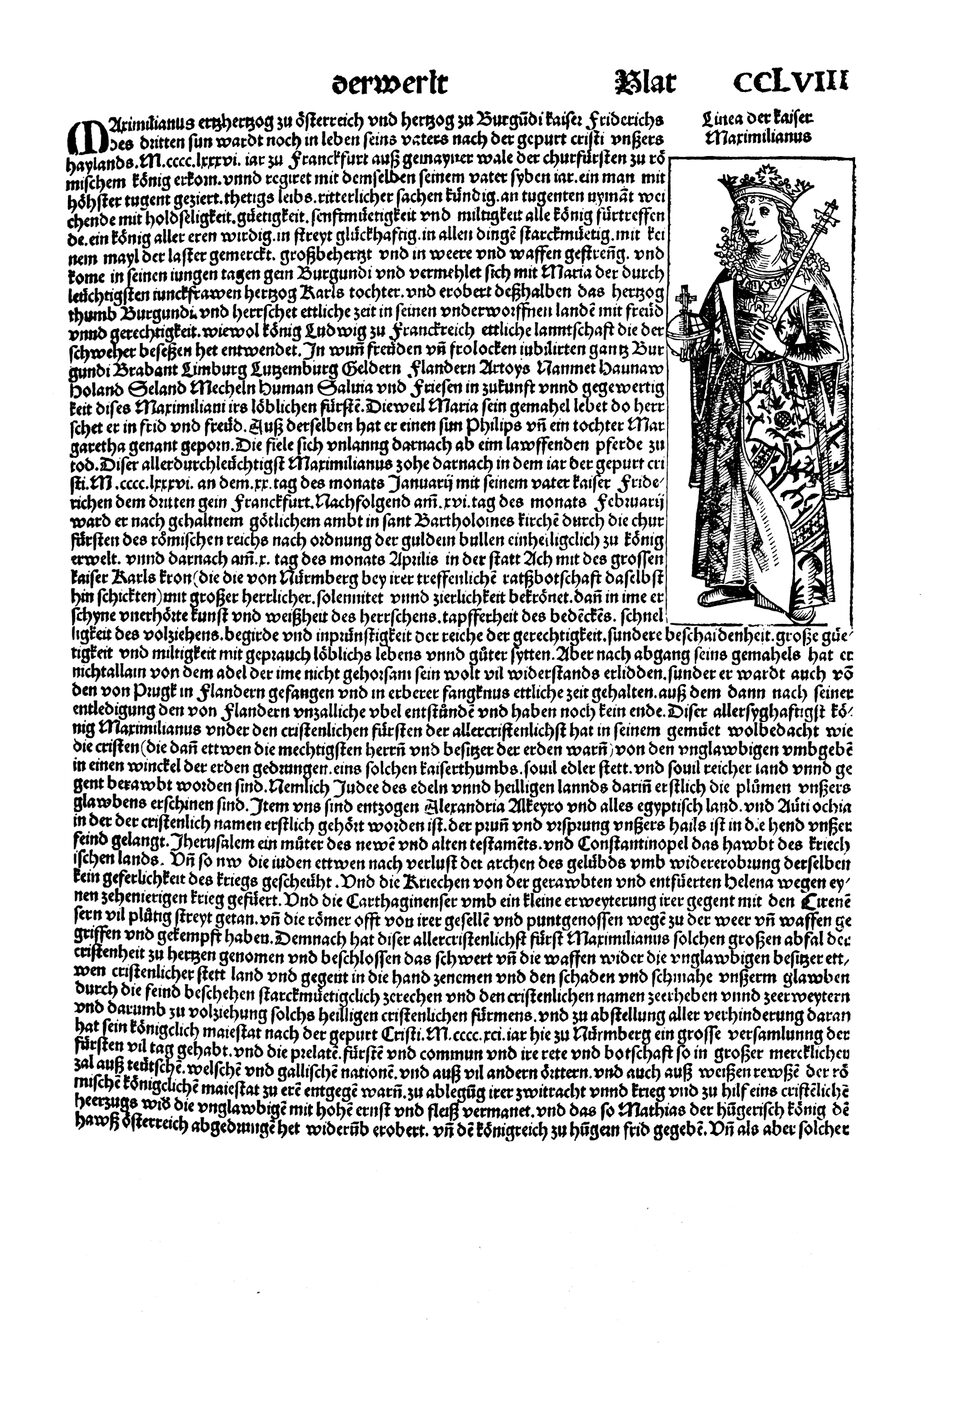 der werlt Blat CCLVIII
Linea der kaiser
Maximilianus
MAximilianus ertzhertzog zu österreich vnd hertzog zu Burgũdi kaiser Friderichs
des dritten sun wardt noch in leben seins vaters nach der gepurt cristi vnßers
haylands.M.cccc.lxxxvi. iar zu Franckfurt auß gemayner wale der churfürsten zu rö
mischem könig erkorn.vnnd regiret mit demselben seinem vater syben iar.ein man mit
höhster tugent geziert.thetigs leibs.ritterlicher sachen kündig.an tugenten nymãt wei
chende mit holdseligkeit.güetigkeit.senftmüetigkeit vnd miltigkeit alle könig fürtreffen
de.ein könig aller eren wirdig.in streyt glückhaftig.in allen dingẽ starckmüetig.mit kei
nem mayl der laster gemerckt. großbehertzt vnd in weere vnd waffen gestreñg. vnd
kome in seinen iungen tagen gein Burgundi vnd vermehlet sich mit Maria der durch
leüchtigsten iunckfrawen hertzog Karls tochter.vnd erobert deßhalben das hertzog
thumb Burgundi.vnd herrschet ettliche zeit in seinen vnderworffnen landẽ mit freüd
vnnd gerechtigkeit.wiewol könig Ludwig zu Franckreich ettliche lanntschaft die der
schweher beseßen het entwendet. In wuñ freüden vñ frolocken iubilirten gantz Bur
gundi Brabant Limburg Lutzemburg Geldern Flandern Artoys Nanmet Haunaw
Holand Seland Mecheln Human Saluia vnd Friesen in zukunft vnnd gegewertig
keit dises Maximiliani irs löblichen fürstẽ.Dieweil Maria sein gemahel lebet do herr
schet er in frid vnd freüd.Auß derselben hat er einen sun Philips vñ ein tochter Mar
garetha genant geporn.Die fiele sich vnlanng darnach ab eim lawffenden pferde zu
tod.Diser allerdurchleüchtigst Maximilianus zohe darnach in dem iar der gepurt cri
sti.M.cccc.lxxxvi. an dem.xx.tag des monats Januarij mit seinem vater kaiser Fride-
richen dem dritten gein Franckfurt.Nachfolgend am̃.xvi.tag des monats Februarij
ward er nach gehaltnem götlichem ambt in sant Bartholomes kirchẽ durch die chur
fürsten des römischen reichs nach ordnung der guldein bullen einheiligclich zu könig
erwelt. vnnd darnach am̃.x. tag des monats Aprilis in der statt Ach mit des grossen
kaiser Karls kron(die die von Nürmberg bey irer treffenlichẽ ratßbotschaft daselbst
hin schickten)mit großer herrlicher.solennitet vnnd zierlichkeit bekrönet.dañ in ime er
schyne vnerhörte kunst vnd weißheit des herrschens.tapfferheit des bedẽckẽs. schnel
ligkeit des volziehens.begirde vnd inprünstigkeit der reiche der gerechtigkeit.sundere beschaidenheit.große güe-
tigkeit vnd miltigkeit mit geprauch löblichs lebens vnnd güter sytten.Aber nach abgang seins gemahels hat er
nichtallain von dem adel der ime nicht gehorsam sein wolt vil widerstands erlidden.sunder er wardt auch võ
den von Prugk in Flandern gefangen vnd in erberer fangknus ettliche zeit gehalten.auß dem dann nach seiner
entledigung den von Flandern vnzalliche vbel entstündẽ vnd haben noch kein ende.Diser allersyghaftigst kö-
nig Maximilianus vnder den cristenlichen fürsten der allercristenlichst hat in seinem gemüet wolbedacht wie
die cristen(die dañ ettwen die mechtigsten herrñ vnd besitzer der erden warñ)von den vnglawbigen vmbgebẽ
in einen winckel der erden gedrungen.eins solchen kaiserthumbs.souil edler stett.vnd souil reicher land vnnd ge
gent berawbt worden sind.Nemlich Judee des edeln vnnd heilligen lannds dariñ erstlich die plůmen vnßers
glawbens erschinen sind.Item vns sind entzogen Alexandria Alkeyro vnd alles egyptisch land.vnd Aũtiochia
in der der cristenlich namen erstlich gehört worden ist.der pruñ vnd vrsprung vnßers hails ist in die hend vnßer
feind gelangt.Jherusalem ein můter des newẽ vnd alten testamẽts.vnd Constantinopel das hawbt des kriech
ischen lands. Vñ so nw die iuden ettwen nach verlust der archen des gelübds vmb widererobrung derselben
kein geferlichkeit des kriegs gescheüht.Vnd die Kriechen von der gerawbten vnd entfüerten Helena wegen ey-
nen zehenierigen krieg gefüert.Vnd die Carthaginenser vmb ein kleine erweyterung irer gegent mit den Cirenẽ
sern vil plůtig streyt getan.vñ die römer offt von irer gesellẽ vnd puntgenossen wegẽ zu der weer vñ waffen ge
griffen vnd gekempft haben.Demnach hat diser allercristenlichst fürst Maximilianus solchen großen abfal der
cristenheit zu hertzen genomen vnd beschlossen das schwert vñ die waffen wider die vnglawbigen besitzer ett-
wen cristenlicher stett land vnd gegent in die hand zenemen vnd den schaden vnd schmahe vnßerm glawben
durch die feind beschehen starckmüetigclich zerechen vnd den cristenlichen namen zeerheben vnnd zeerweytern
vnd darumb zu volziehung solchs heilligen cristenlichen fürmens.vnd zu abstellung aller verhinderung daran
hat sein königclich maiestat nach der gepurt Cristi.M.cccc.xci.iar hie zu Nürmberg ein grosse versamlunng der
fürsten vil tag gehabt.vnd die prelatẽ.fürstẽ vnd commun vnd ire rete vnd botschaft so in großer mercklichen
zal auß teütschẽ.welschẽ vnd gallischẽ nationẽ.vnd auß vil andern örttern.vnd auch auß weißen rewßẽ der rö
mischẽ königclichẽ maiestat zu erẽ entgegẽ warñ.zu ablegũg irer zwitracht vnnd krieg vnd zu hilf eins cristẽlichẽ
heerzugs wid̃ die vnglawbigẽ mit hohẽ ernst vnd fleiß vermanet.vnd das so Mathias der hũgerisch könig dẽ
hawß österreich abgedrungẽ het widerũb erobert. vñ dẽ königreich zu hũgern frid gegebẽ.Vñ als aber solcher